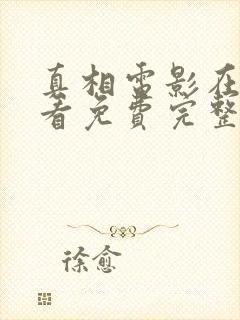 真相雷影在
看免费完整
徐愈